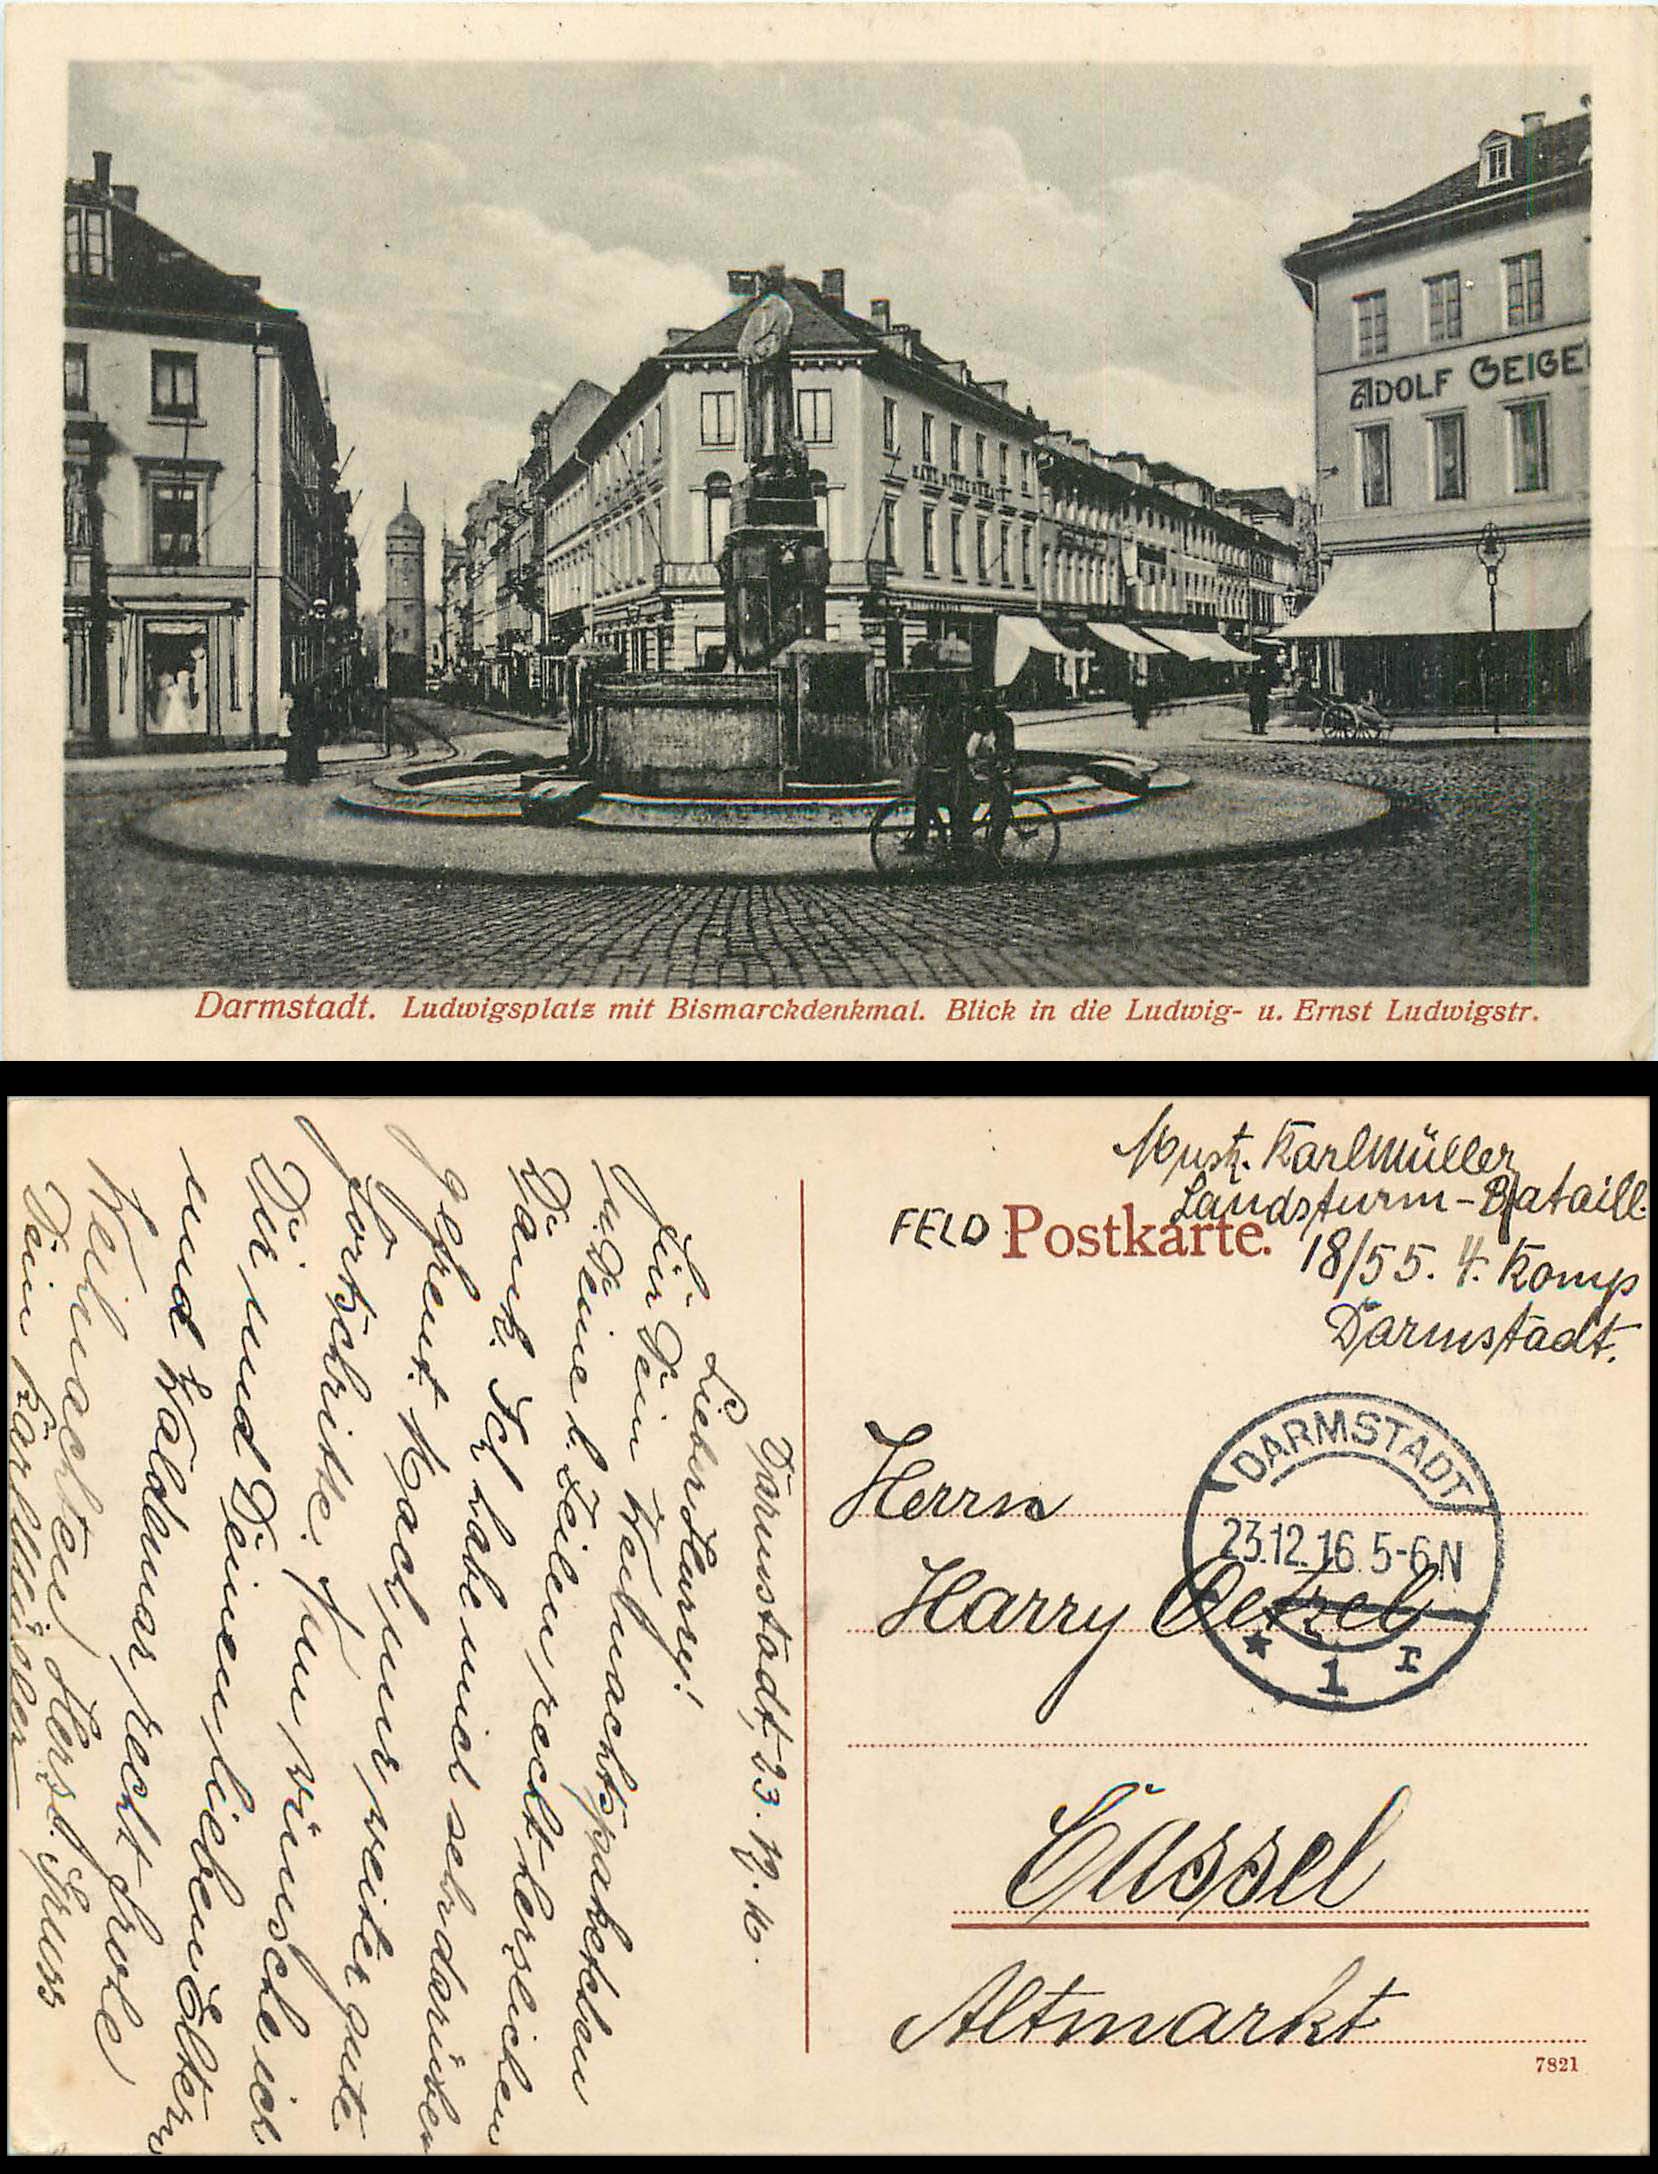 ADOLF GEIGE
KARL RITTERSHAUS
Darmstadt. Ludwigsplatz mit Bismarckdenkmal. Blick in die Ludwig- u. Ernst Ludwigstr.
Musk. Karl Müller
Landsturm-Bataill.
18/55. 4. Komp
Darmstadt.
FELD Postkarte.
DARMSTADT
23.12.16.5-6N
* 1 r
Herrn
Harry Oetzel
Cassel
Altmarkt
7821
Darmstadt, 23. 12. 16.
Lieber Harry!
Für Dein Weihnachtspaketchen
u. Deine l. Zeilen, recht herzlichen
Dank. Ich habe mich sehr darüber
gefreut. Mach nur weiter gute
Fortschritte. Nun wünsche ich
Dir und Deinen lieben Eltern
und Waldmar, recht frohe
Weihnachten, Herzl. Gruss
Dein Karl Müller